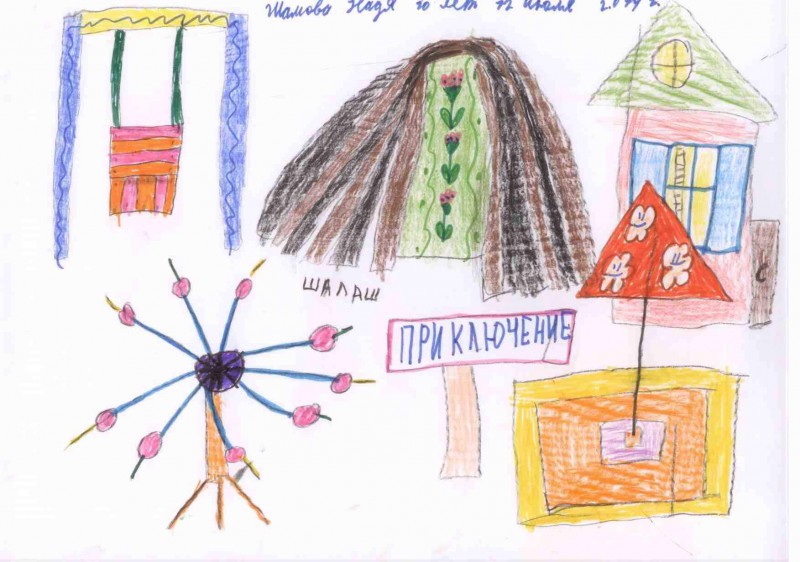 Шамова Надя 10 лет 12 июля
ШАЛАШ
ПРИКЛЮЧЕНИЕ